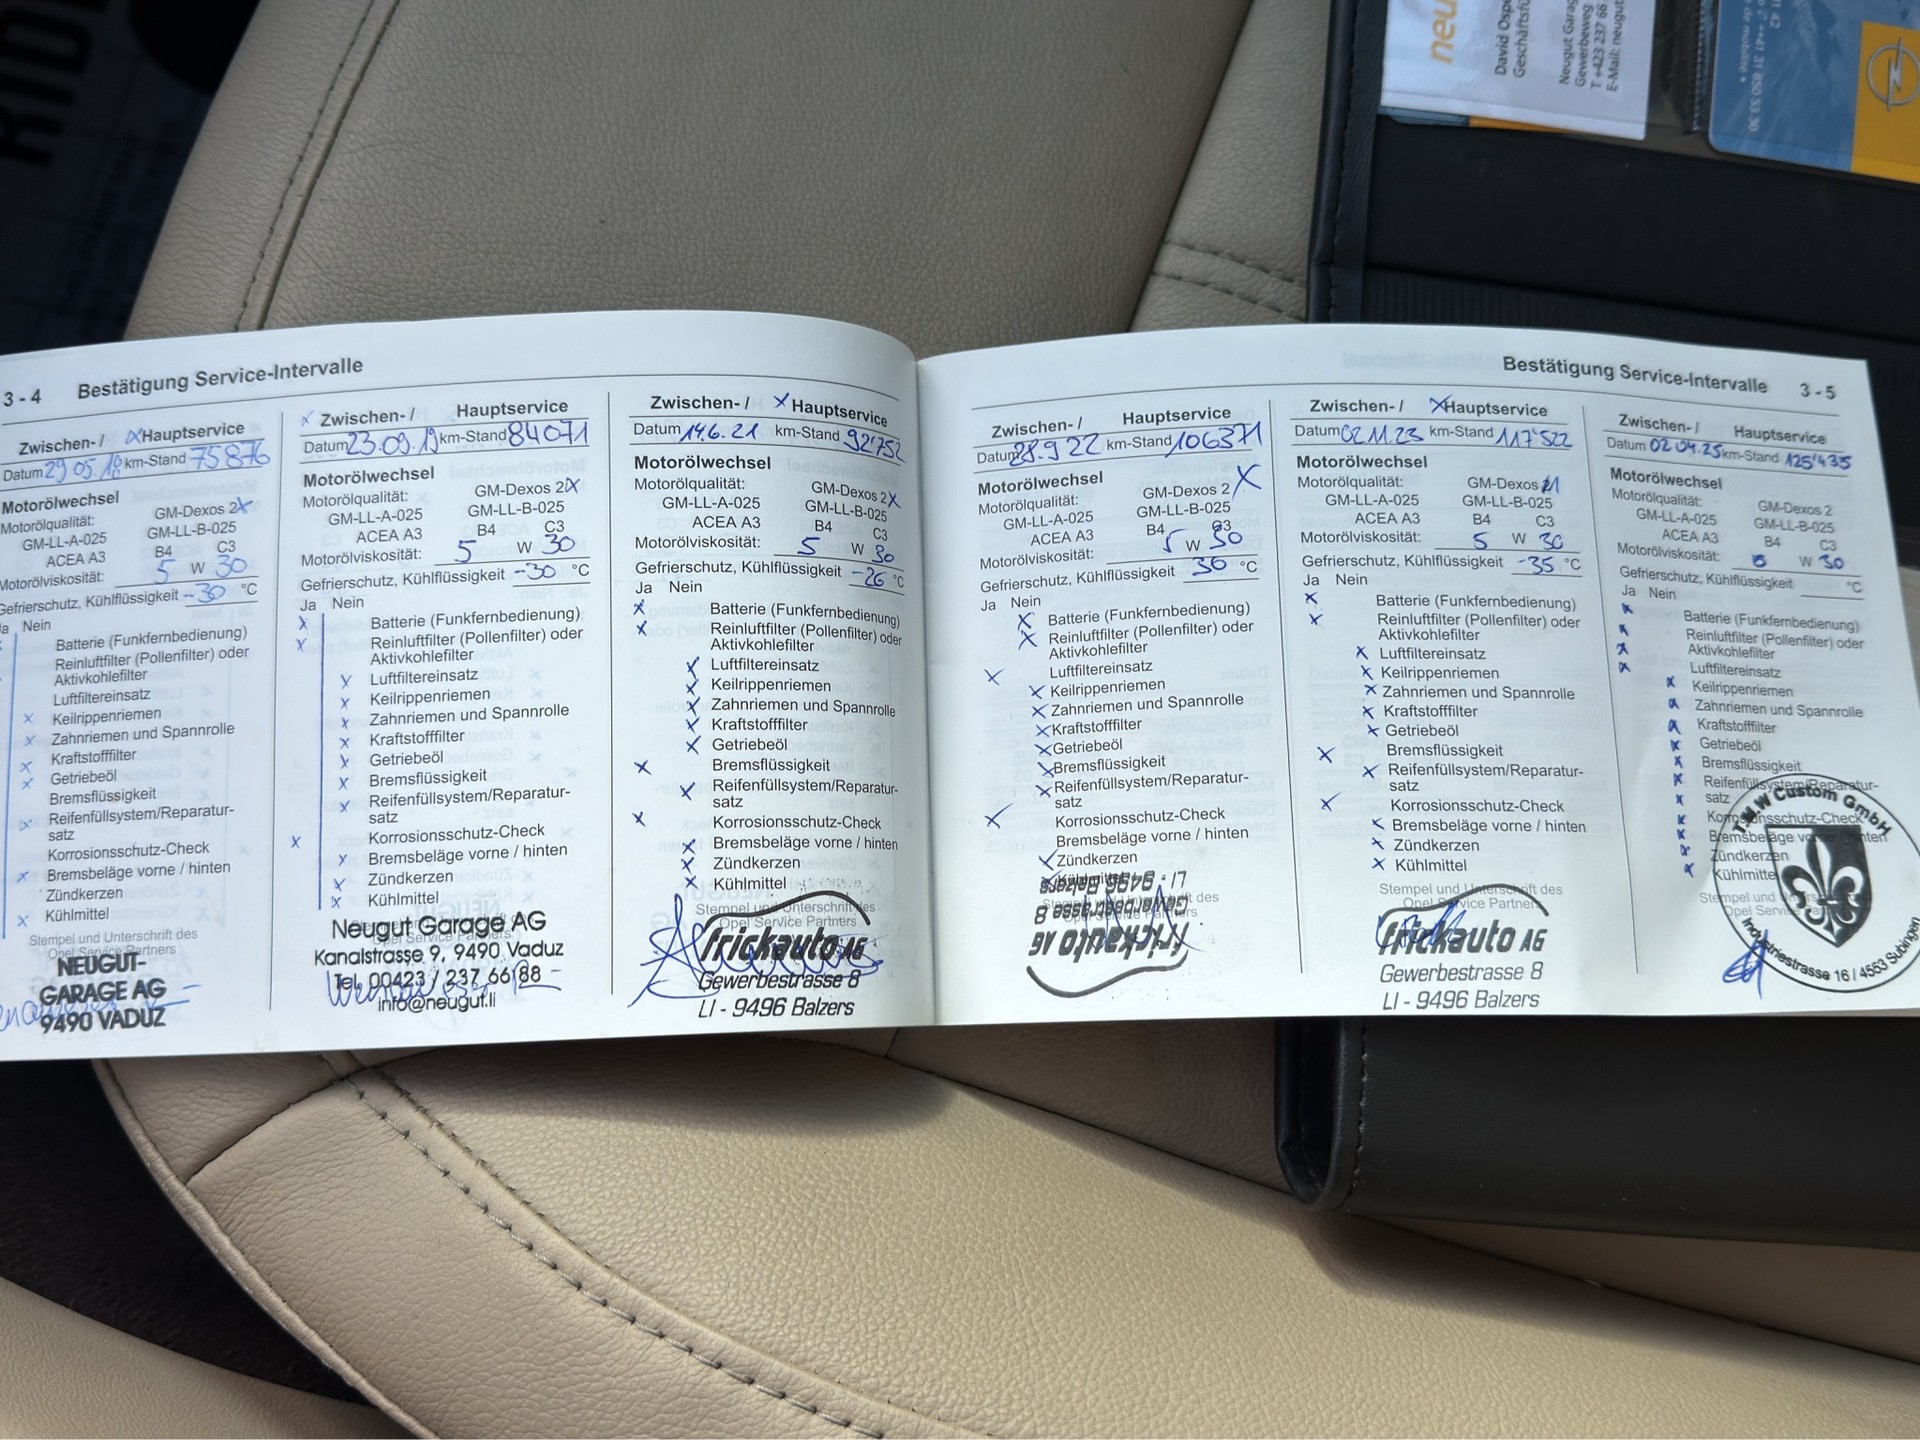 3 - 4 Bestätigung Service-Intervalle
Zwischen- / X Hauptservice
Datum 29 05.18 km-Stand 75876
Motorölwechsel
Motorölqualität: GM-Dexos 2 X
GM-LL-A-025 GM-LL-B-025
ACEA A3 B4 C3
Motorölviskosität: 5 W 30
Gefrierschutz, Kühlflüssigkeit -30 °C
Ja Nein
Batterie (Funkfernbedienung)
Reinluftfilter (Pollenfilter) oder
Aktivkohlefilter
Luftfiltereinsatz
X Keilrippenriemen
X Zahnriemen und Spannrolle
Kraftstofffilter
X Getriebeöl
Bremsflüssigkeit
X Reifenfüllsystem/Reparatur-
satz
Korrosionsschutz-Check
X Bremsbeläge vorne / hinten
Zündkerzen
X Kühlmittel
Stempel und Unterschrift des
Opel Service Partners
NEUGUT-
GARAGE AG
9490 VADUZ
X Zwischen- / Hauptservice
Datum 23.09.19 km-Stand 84071
Motorölwechsel
Motorölqualität: GM-Dexos 2 X
GM-LL-A-025 GM-LL-B-025
ACEA A3 B4 C3
Motorölviskosität: 5 W 30
Gefrierschutz, Kühlflüssigkeit -30 °C
Ja Nein
X Batterie (Funkfernbedienung)
X Reinluftfilter (Pollenfilter) oder
Aktivkohlefilter
X Luftfiltereinsatz
X Keilrippenriemen
X Zahnriemen und Spannrolle
X Kraftstofffilter
X Getriebeöl
X Bremsflüssigkeit
X Reifenfüllsystem/Reparatur-
satz
X Korrosionsschutz-Check
X Bremsbeläge vorne / hinten
X Zündkerzen
X Kühlmittel
Stempel und Unterschrift des
Opel Service Partners
Neugut Garage AG
Kanalstrasse 9, 9490 Vaduz
Tel. 00423 / 237 66 88
info@neugut.li
Zwischen- / X Hauptservice
Datum 14.6.21 km-Stand 92'752
Motorölwechsel
Motorölqualität: GM-Dexos 2 X
GM-LL-A-025 GM-LL-B-025
ACEA A3 B4 C3
Motorölviskosität: 5 W 30
Gefrierschutz, Kühlflüssigkeit -26 °C
Ja Nein
X Batterie (Funkfernbedienung)
X Reinluftfilter (Pollenfilter) oder
Aktivkohlefilter
X Luftfiltereinsatz
X Keilrippenriemen
X Zahnriemen und Spannrolle
X Kraftstofffilter
X Getriebeöl
X Bremsflüssigkeit
X Reifenfüllsystem/Reparatur-
satz
X Korrosionsschutz-Check
X Bremsbeläge vorne / hinten
X Zündkerzen
X Kühlmittel
Stempel und Unterschrift des
Opel Service Partners
frickauto AG
Gewerbestrasse 8
LI - 9496 Balzers
Bestätigung Service-Intervalle 3 - 5
Zwischen- / Hauptservice
Datum 28.9 22 km-Stand 106371
Motorölwechsel
Motorölqualität: GM-Dexos 2 X
GM-LL-A-025 GM-LL-B-025
ACEA A3 B4 C3
Motorölviskosität: 5 W 30
Gefrierschutz, Kühlflüssigkeit 30 °C
Ja Nein
X Batterie (Funkfernbedienung)
X Reinluftfilter (Pollenfilter) oder
Aktivkohlefilter
X Luftfiltereinsatz
X Keilrippenriemen
X Zahnriemen und Spannrolle
X Kraftstofffilter
X Getriebeöl
X Bremsflüssigkeit
X Reifenfüllsystem/Reparatur-
satz
X Korrosionsschutz-Check
Bremsbeläge vorne / hinten
X Zündkerzen
X Kühlmittel
Stempel und Unterschrift des
Opel Service Partners
frickauto AG
Gewerbestrasse 8
LI - 9496 Balzers
Zwischen- / X Hauptservice
Datum 02.11.23 km-Stand 117'522
Motorölwechsel
Motorölqualität: GM-Dexos
GM-LL-A-025 GM-LL-B-025
ACEA A3 B4 C3
Motorölviskosität: 5 W 30
Gefrierschutz, Kühlflüssigkeit -35 °C
Ja Nein
X Batterie (Funkfernbedienung)
X Reinluftfilter (Pollenfilter) oder
Aktivkohlefilter
X Luftfiltereinsatz
X Keilrippenriemen
X Zahnriemen und Spannrolle
X Kraftstofffilter
X Getriebeöl
X Bremsflüssigkeit
X Reifenfüllsystem/Reparatur-
satz
X Korrosionsschutz-Check
X Bremsbeläge vorne / hinten
X Zündkerzen
X Kühlmittel
Stempel und Unterschrift des
Opel Service Partners
frickauto AG
Gewerbestrasse 8
LI - 9496 Balzers
Zwischen- / Hauptservice
Datum 02.04.25 km-Stand 125'435
Motorölwechsel
Motorölqualität: GM-Dexos 2
GM-LL-A-025 GM-LL-B-025
ACEA A3 B4 C3
Motorölviskosität: W 30
Gefrierschutz, Kühlflüssigkeit °C
Ja Nein
X Batterie (Funkfernbedienung)
X Reinluftfilter (Pollenfilter) oder
X Aktivkohlefilter
X Luftfiltereinsatz
X Keilrippenriemen
X Zahnriemen und Spannrolle
X Kraftstofffilter
X Getriebeöl
X Bremsflüssigkeit
X Reifenfüllsystem/Reparatur-
X satz
X Korrosionsschutz-Check
X Bremsbeläge vorne / hinten
X Zündkerzen
X Kühlmittel
Stempel und Unterschrift des
Opel Service Partners
T.M.W Custom GmbH
Industriestrasse 16 / 4553 Subingen
neu
David Ospe
Geschäftsfü
Neugut Garag
Gewerbeweg
T +423 237 66
E-Mail: neugut
+41 31 850 53 30
de mobilité